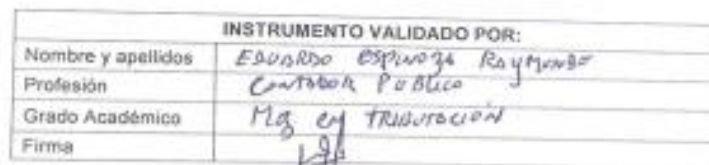 INSTRUMENTO VALIDADO POR:
Nombre y apellidos EDUARDO ESPINOZA RAYMUNDO
Profesión CONTADOR PUBLICO
Grado Académico Mg en TRIBUTACIÓN
Firma